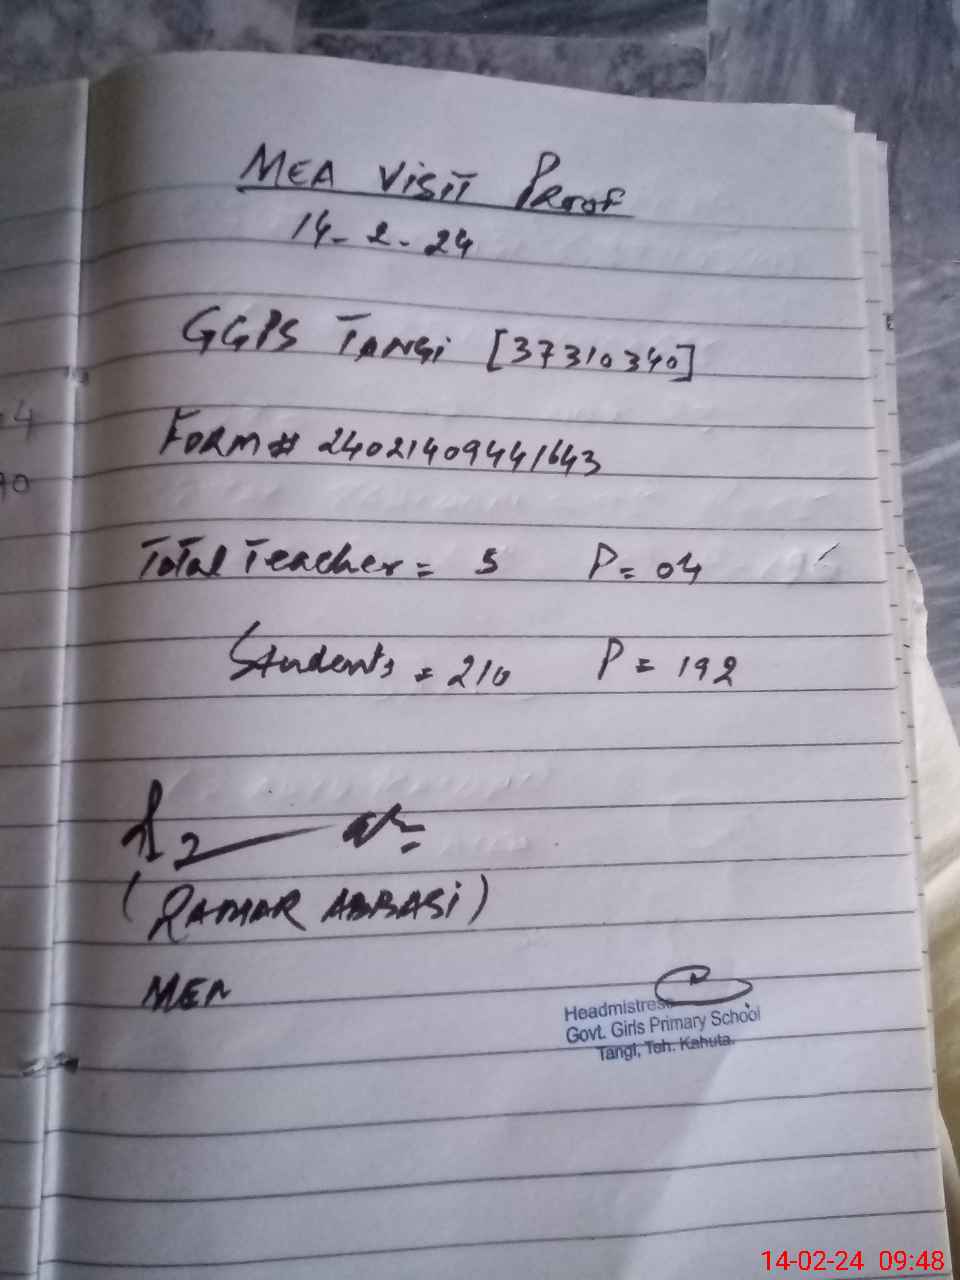 MEA Visit Proof
14-2-24
GGPS Tangi [37310340]
Form# 24021409441643
Total Teacher = 5 P = 04
Students = 210 P = 192
(QAMAR ABBASi)
MEA
Headmistress
Govt. Girls Primary School
Tangi, Teh. Kahuta.
14-02-24 09:48